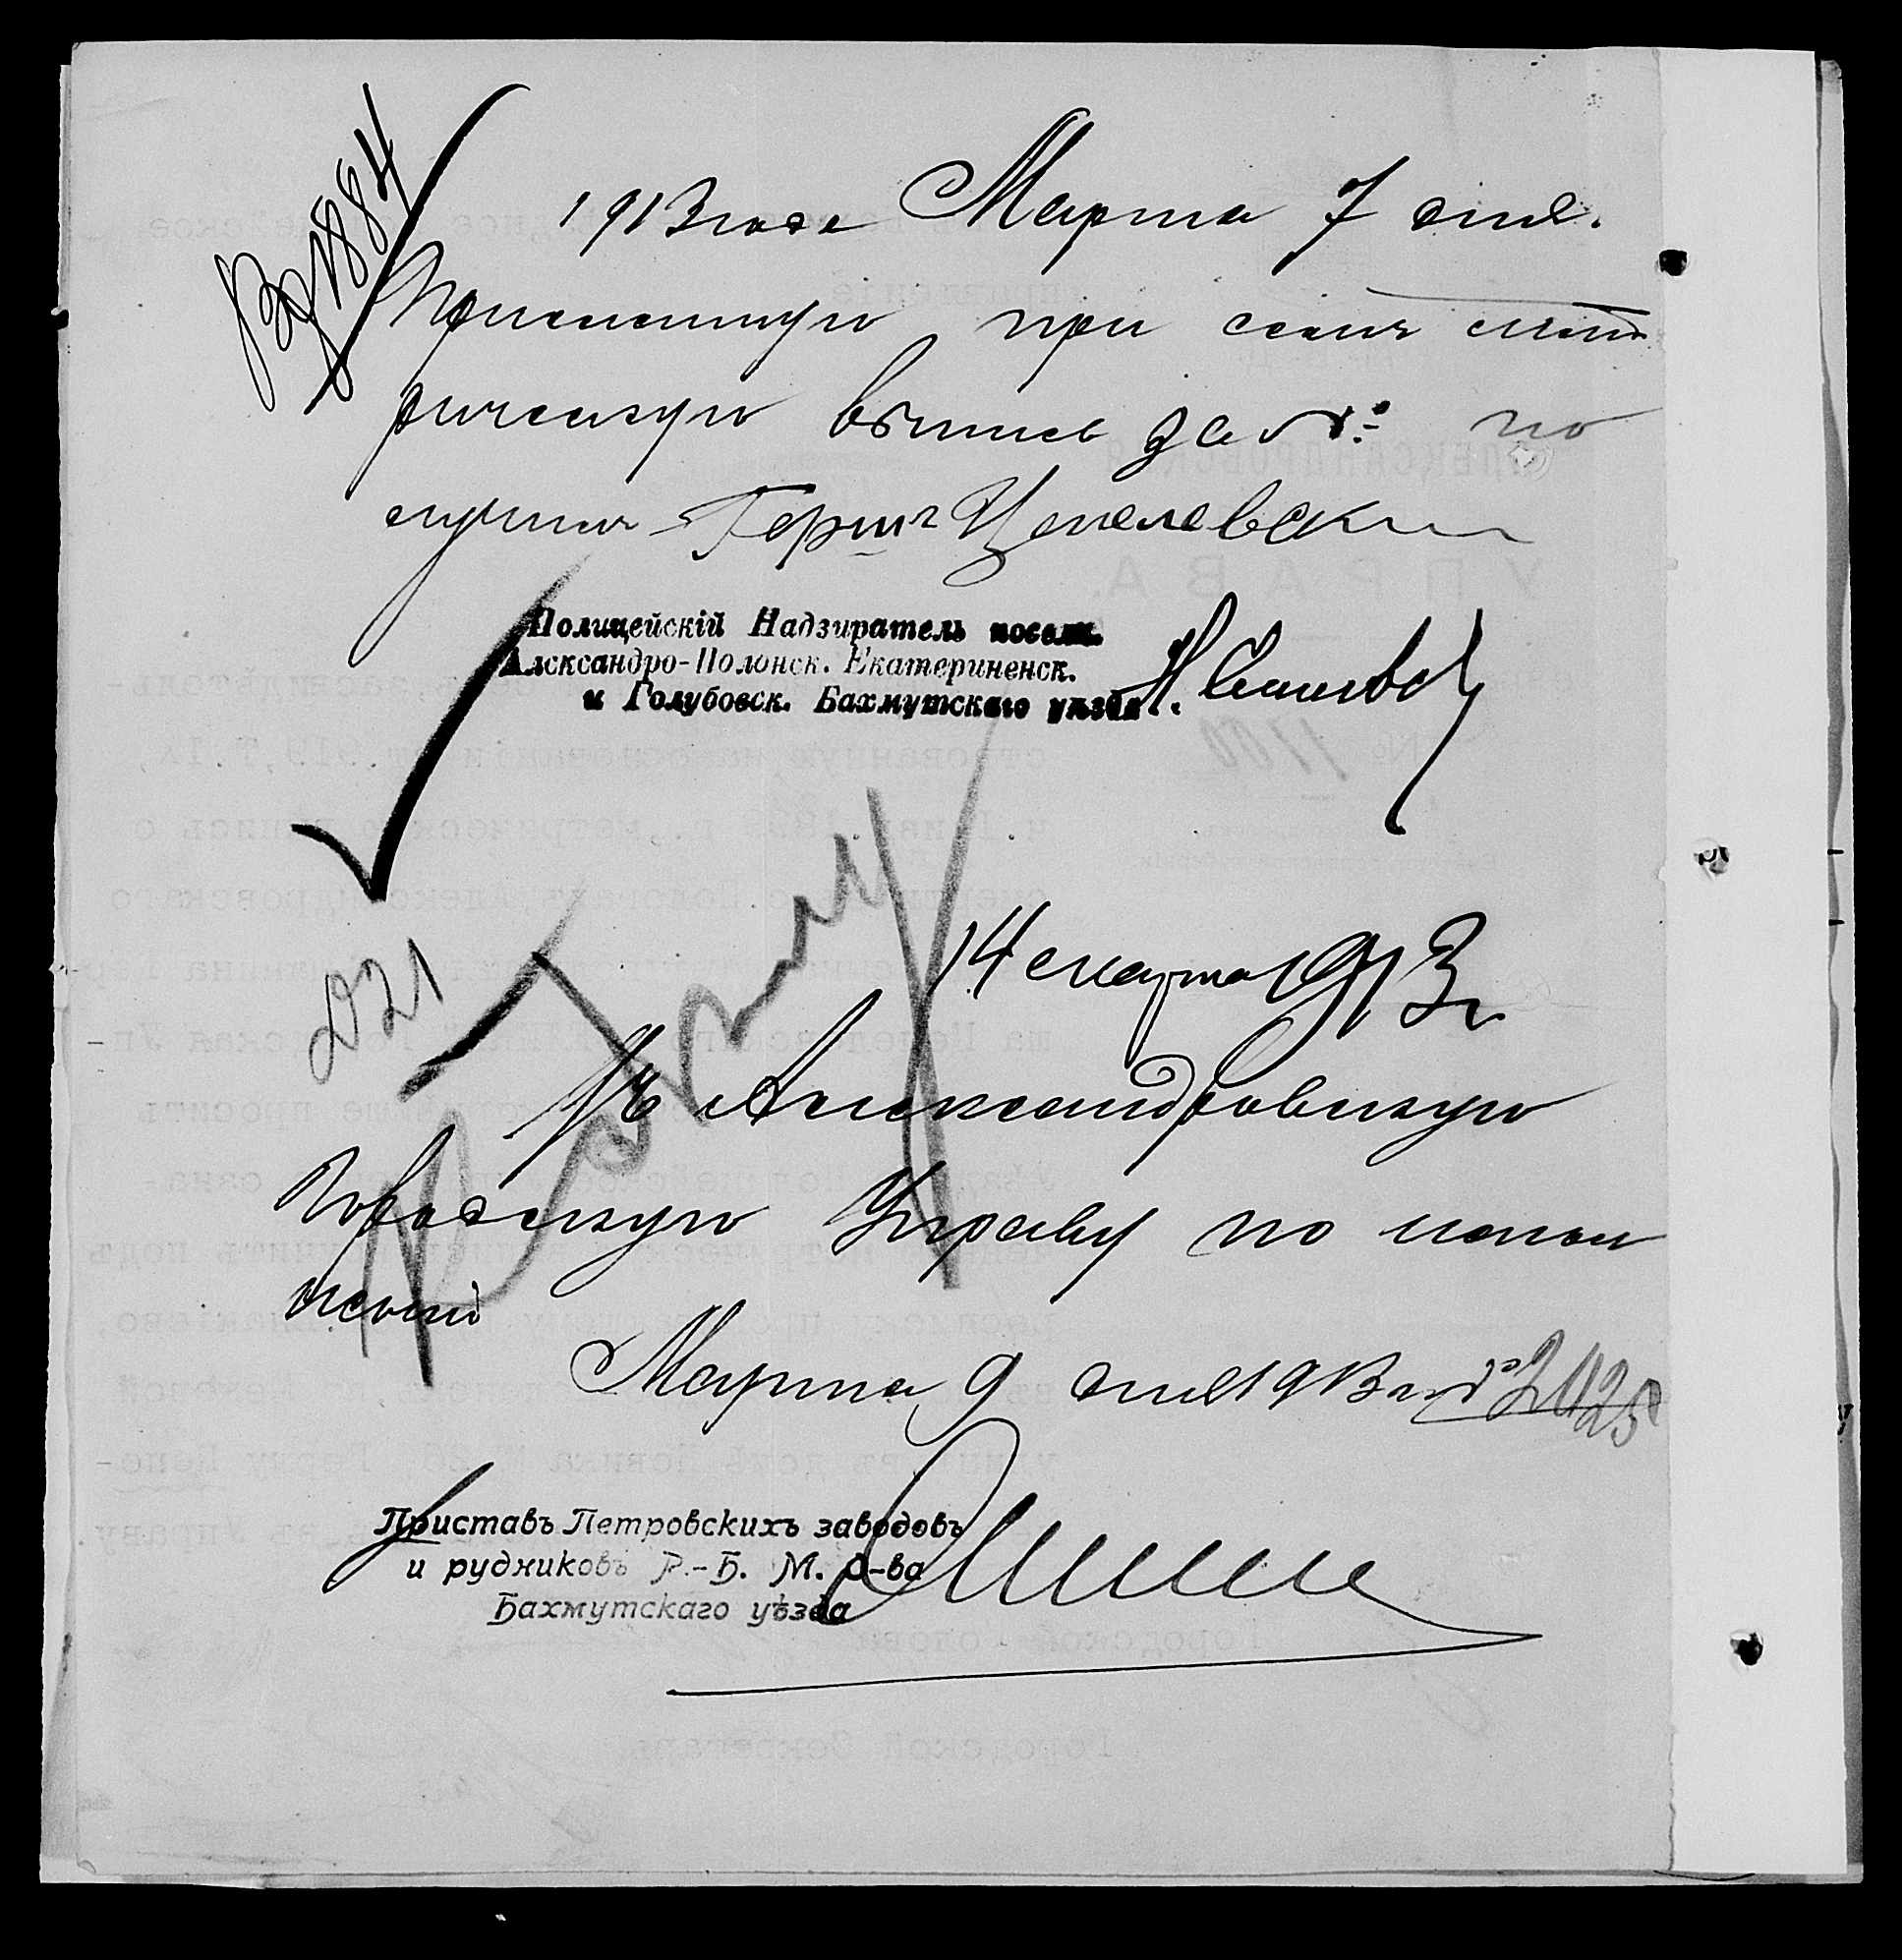 Вх 1884
1913 года Марта 7 дня.
Присланную при семъ мет
рическую выпись за №: по
лучилъ Герш Цепелевскій
Полицейскій Надзиратель посел.
Александро-Полонск. Екатериненск.
и Голубовск. Бахмутскаго уѣзда.
2021
14 марта 1913 г
Въ Александровскую
Городскую Управу по испол
неніи
Марта 9 дня 1913 г. № 2425
Приставъ Петровскихъ заводовъ
и рудниковъ Р.-Б. М. О-ва
Бахмутскаго уѣзда